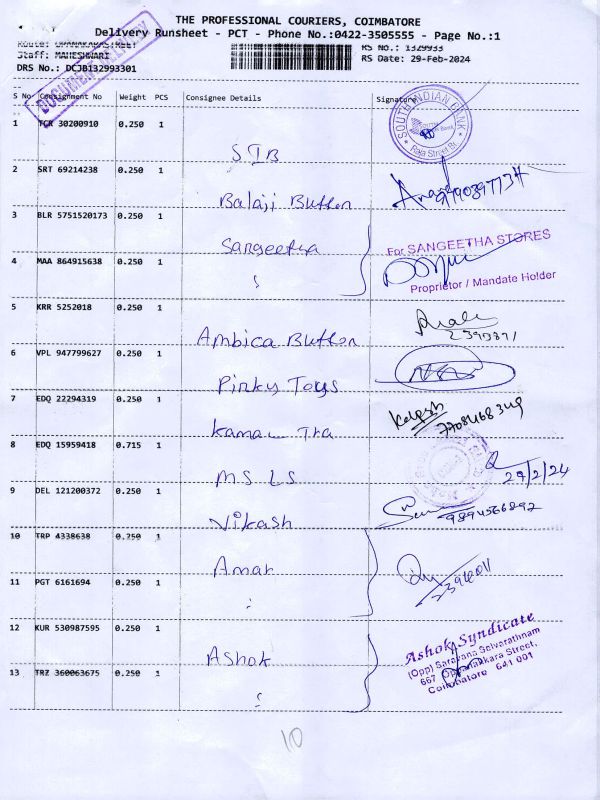 THE PROFESSIONAL COURIERS, COIMBATORE
Delivery Runsheet - PCT - Phone No.:0422-3505555 - Page No.:1
Route: OPPANAKARA STREET
Staff: MAHESHWARI
RS No.: 1329933
DRS No.: DCJB132993301
RS Date: 29-Feb-2024
S No Consignment No Weight PCS Consignee Details Signature
1 TCR 30200910 0.250 1
SOUTH INDIAN BANK
Raja Street Br.
SIB
2 SRT 69214238 0.250 1
Balaji Button
3 BLR 5751520173 0.250 1
Sangeetha
For SANGEETHA STORES
4 MAA 864915638 0.250 1
Proprietor / Mandate Holder
5 KRR 5252018 0.250 1
Ambica Button
6 VPL 947799627 0.250 1
Pinky Toys
7 EDQ 22294319 0.250 1
Kalpesh
Kamal Tra
8 EDQ 15959418 0.715 1
29/2/24
MS LS
9 DEL 121200372 0.250 1
Vikash
9894566892
10 TRP 4338638 0.250 1
Amar
11 PGT 6161694 0.250 1
12 KUR 530987595 0.250 1
Ashok
Ashok Syndicate
(Opp) Saravana Selvarathnam
667 Oppanakkara Street,
Coimbatore 641 001
13 TRZ 360063675 0.250 1
10